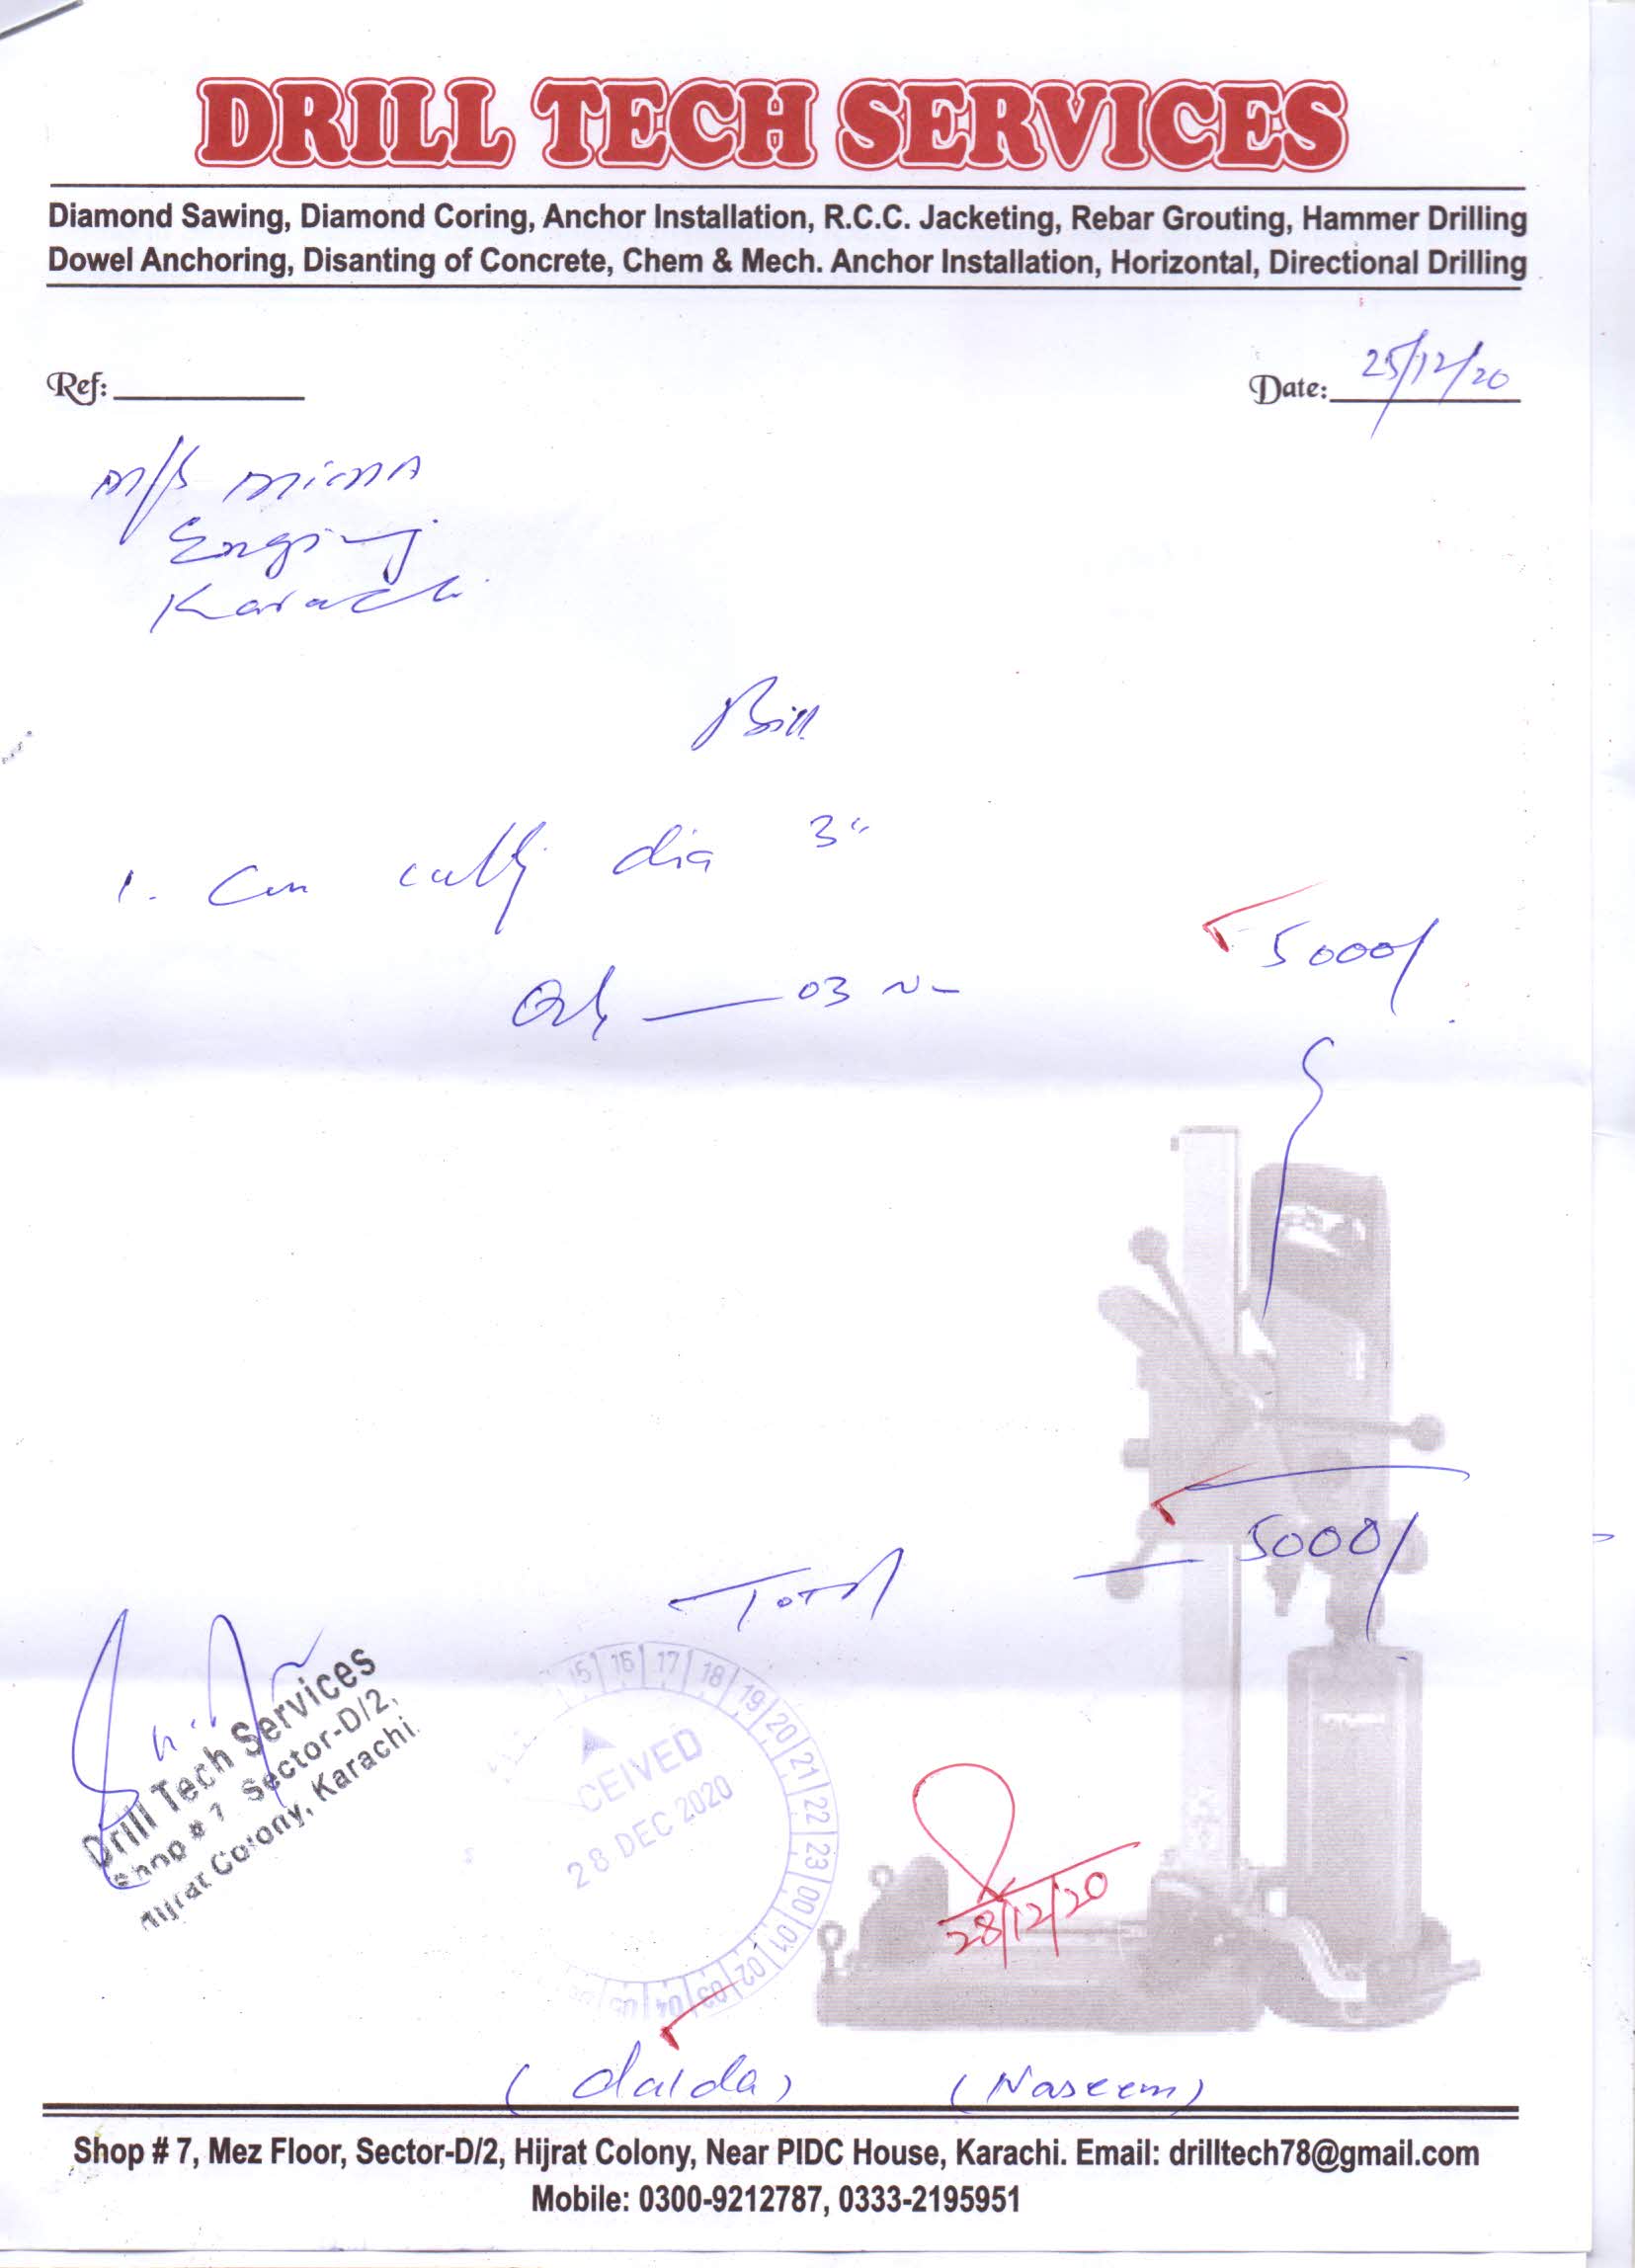 DRILL TECH SERVICES
Diamond Sawing, Diamond Coring, Anchor Installation, R.C.C. Jacketing, Rebar Grouting, Hammer Drilling
Dowel Anchoring, Disanting of Concrete, Chem & Mech. Anchor Installation, Horizontal, Directional Drilling
Ref:
Date: 25/12/20
M/S
Karachi
Bill
1. dia 3"
5000/
03
Total — 5000/
Drill Tech Services
Shop # 7 Sector-D/2,
Hijrat Colony, Karachi.
15 16 17 18 19 20 21 22 23 00 01 02 03 04 05
CEIVED
28 DEC 2020
28/12/20
(dalda) (Naseem)
Shop # 7, Mez Floor, Sector-D/2, Hijrat Colony, Near PIDC House, Karachi. Email: drilltech78@gmail.com
Mobile: 0300-9212787, 0333-2195951